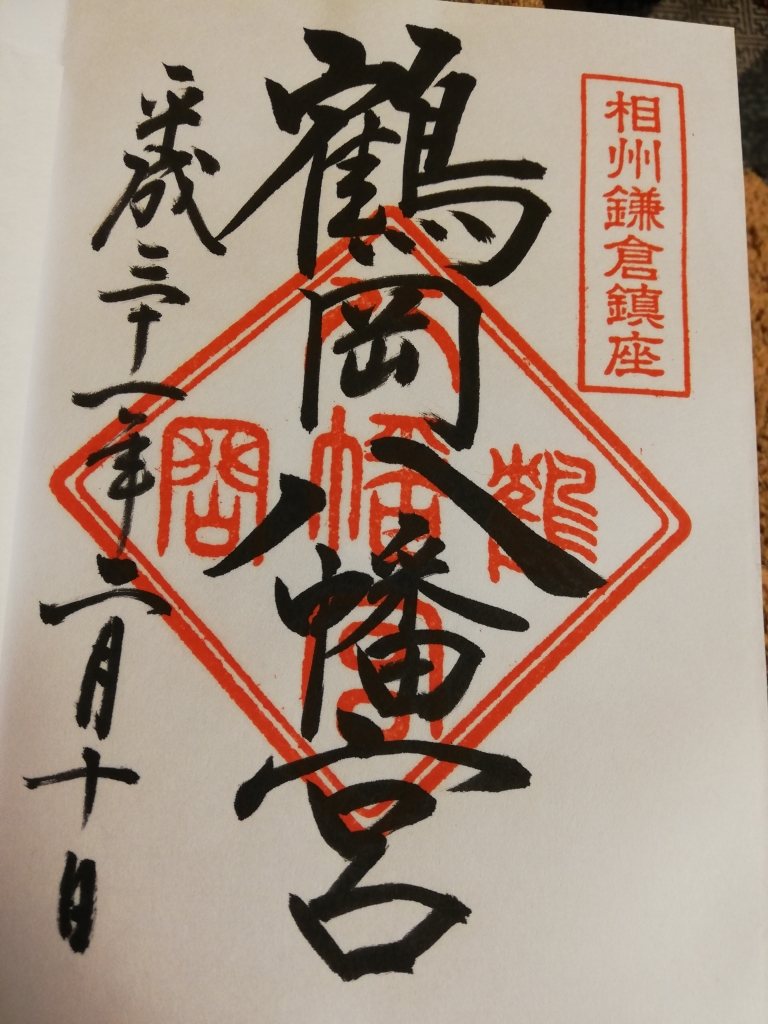 相州鎌倉鎮座
鶴岡八幡宮
平成三十一年二月十日
鶴
八幡宮
岡